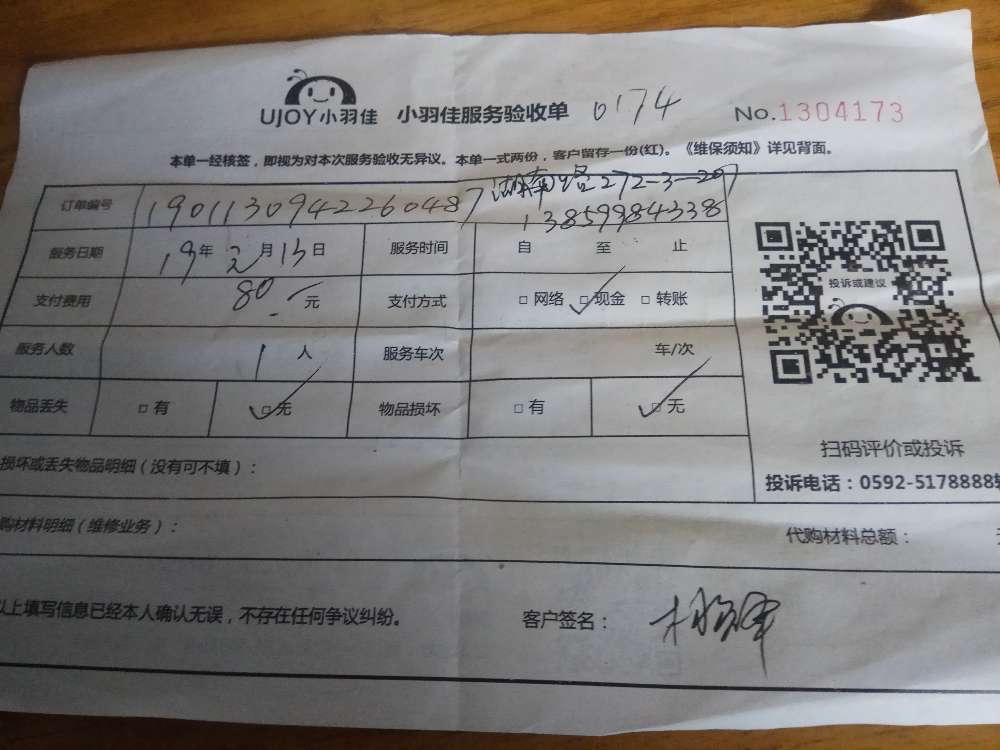 UJOY小羽佳 小羽佳服务验收单 0174 No.1304173
本单一经核签，即视为对本次服务验收无异议。本单一式两份，客户留存一份(红)。《维保须知》详见背面。
订单编号 190113094226048 7 湖南路272-3-207
13859984338
服务日期 19年2月13日 服务时间 自 至 止
支付费用 80.- 元 支付方式 □网络 □现金 □转账
投诉或建议
服务人数 1 人 服务车次 车/次
物品丢失 □有 □无 物品损坏 □有 □无
扫码评价或投诉
损坏或丢失物品明细（没有可不填）：
投诉电话：0592-5178888转
购材料明细（维修业务）： 代购材料总额：
以上填写信息已经本人确认无误，不存在任何争议纠纷。 客户签名：